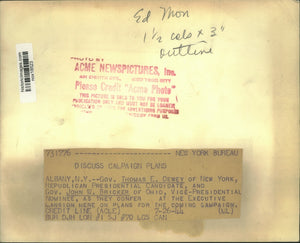 Ed Mon
1 1/2 cols x 3"
outline
PHOTO BY
ACME NEWSPICTURES, Inc.
Please Credit "Acme Photo"
THIS PICTURE IS SOLD TO YOU FOR YOUR
PUBLICATION ONLY AND MUST NOT BE LOANED
731775 NEW YORK BUREAU
DISCUSS CAMPAIGN PLANS
ALBANY, N.Y.--GOV. THOMAS E. DEWEY OF NEW YORK,
REPUBLICAN PRESIDENTIAL CANDIDATE, AND
GOV. JOHN W. BRICKER OF OHIO, VICE-PRESIDENTIAL
NOMINEE, AS THEY CONFER AT THE EXECUTIVE
MANSION HERE ON PLANS FOR THE COMING CAMPAIGN.
CREDIT LINE (ACME) 7-26-44 (WL)